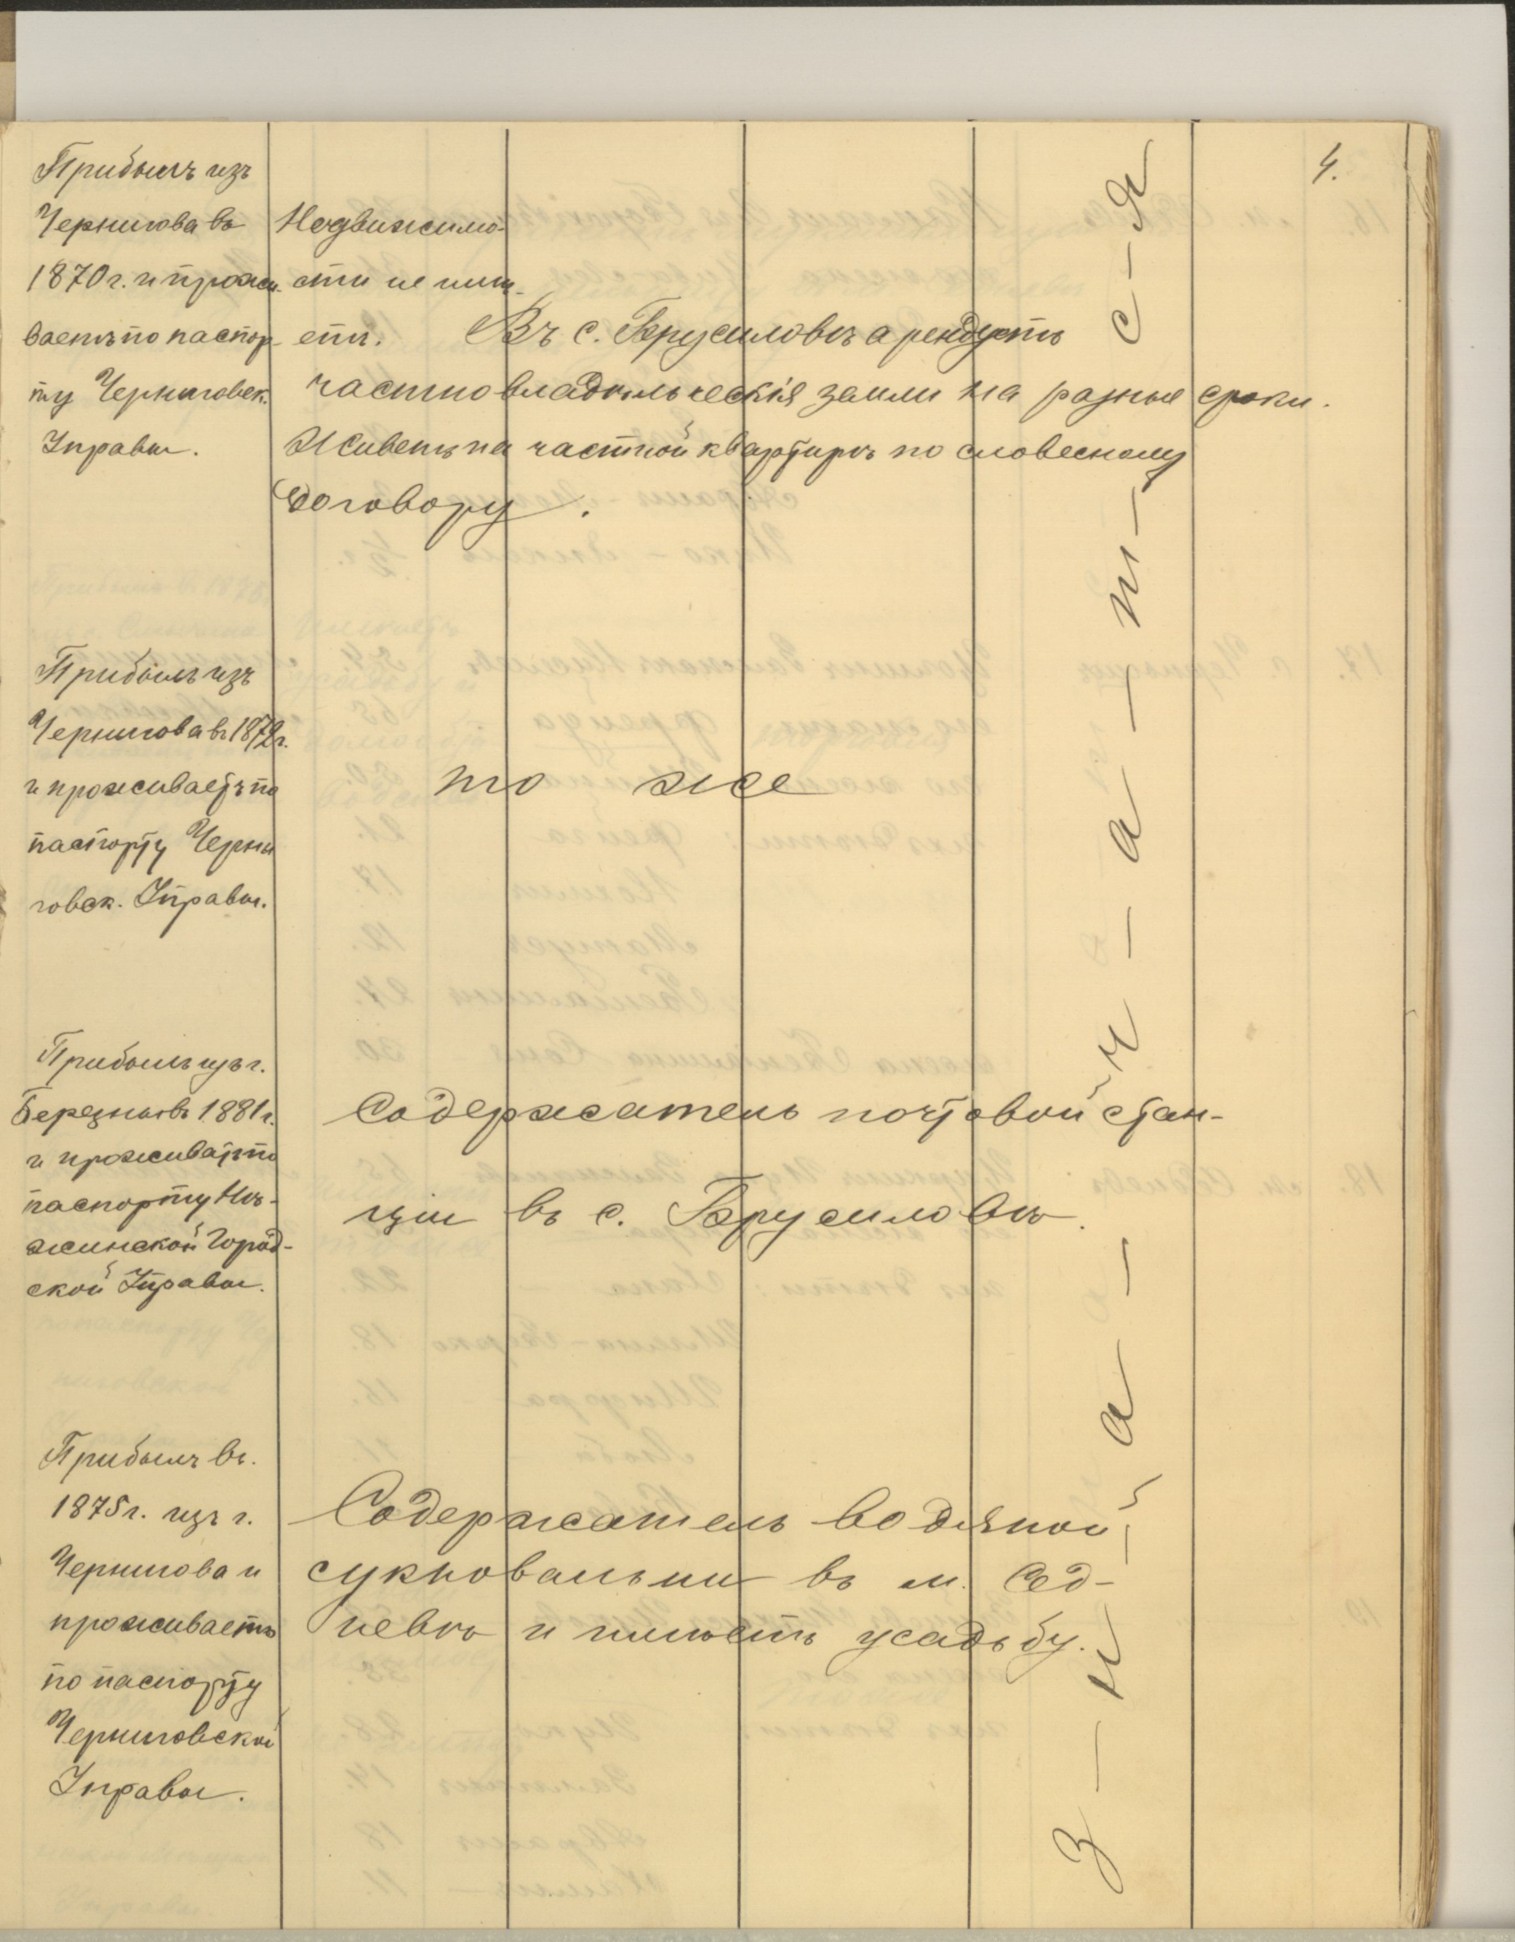 4.
Прибылъ изъ
Чернигова въ
1870 г. и прожи-
ваетъ по паспор-
ту Черниговск.
Управы.
Недвижимо-
сти не имѣ-
етъ. Въ с. Брусиловѣ арендуетъ
частновладѣльческія земли на разные сроки.
Живетъ на частной квартирѣ по словесному
договору.
Прибылъ изъ
Чернигова въ 1872 г.
и проживаетъ по
паспорту Черни
говск. Управы.
то же
Прибылъ изъ г.
Березны въ 1881 г.
и проживаетъ по
паспорту Нѣ-
жинской Город-
ской Управы.
Содержатель почтовой стан-
ціи въ с. Брусиловѣ.
Прибылъ въ
1875 г. изъ г.
Чернигова и
проживаетъ
по паспорту
Черниговской
Управы.
Содержатель водяной
сукновальни въ м. Сед-
невѣ и имѣетъ усадьбу.
З - н - а - ч - а - т - с - я